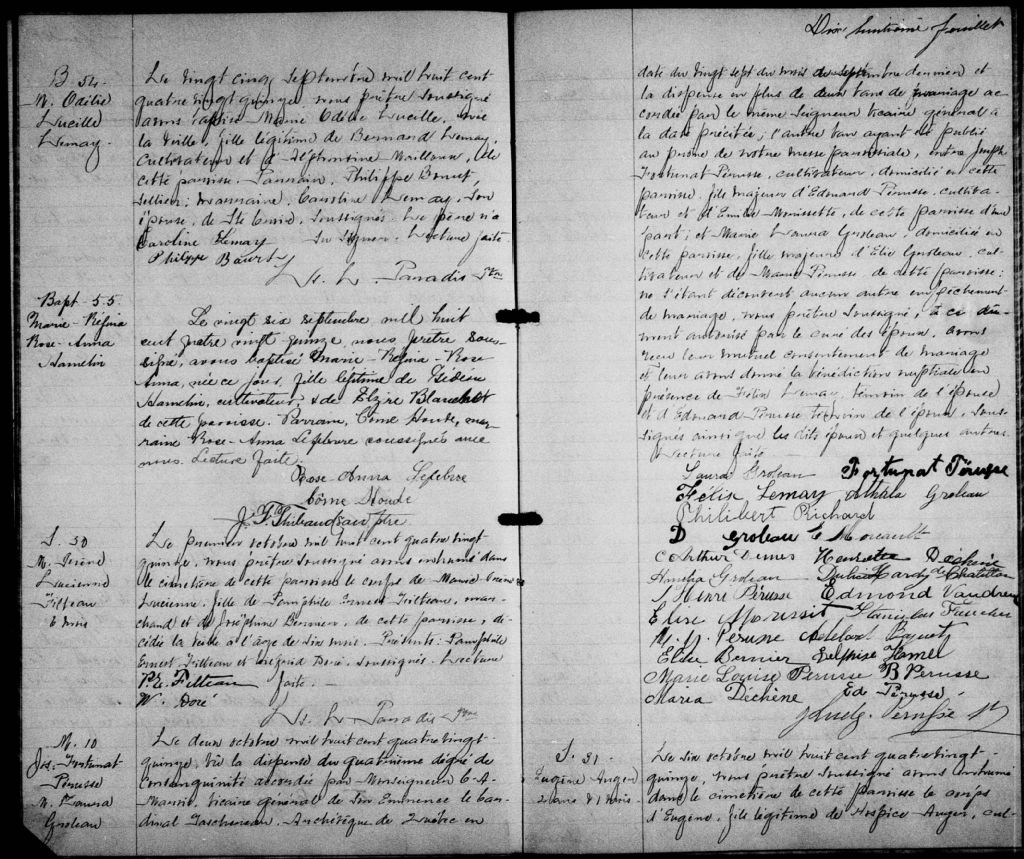 B 54.
M. Odilie
Lucille
Lemay.
Le vingt cinq septembre mil huit cent
quatre vingt quinze, nous prêtre soussigné
avons baptisé Marie Odilie Lucille, née
la veille, fille légitime de Bernard Lemay,
cultivateur et d'Alphonsine Mailloux, de
cette paroisse. Parrain, Philippe
sellier; marraine, Caroline Lemay, son
épouse, de Ste Croix, soussignés. Le père n'a
Caroline Lemay su signer. Lecture faite.
Philippe
Ls. L. Paradis Ptre
Bapt. 55.
Marie-Régina
Rose-Anna
Hamelin
Le vingt six septembre mil huit
cent quatre vingt quinze, nous prêtre sous-
signé, avons baptisé Marie-Régina-Rose
Anna, née ce jour, fille légitime de Gédéon
Hamelin, cultivateur, & de Elzire Blanchet
de cette paroisse. Parrain, Côme Houde, mar-
raine Rose-Anna Lefebvre soussignés avec
nous. Lecture faite.
Rose-Anna Lefebvre
Côme Houde
J. F. Thibaud ptre
S. 30
M. Irène
Lucienne
Filteau
6 mois
Le premier octobre mil huit cent quatre vingt
quinze, nous prêtre soussigné avons inhumé dans
le cimetière de cette paroisse le corps de Marie Irène
Lucienne, fille de Pamphile Ernest Filteau, mar-
chand et de Joséphine Bernier, de cette paroisse, dé-
cédée la veille à l'âge de six mois. Présents: Pamphile
Ernest Filteau et Wilfrid Doré, soussignés. Lecture
P. E. Filteau faite.
W. Doré
Ls. L. Paradis Ptre
M. 10
Jos. Fortunat
Perusse
M. Laura
Groleau
Le deux octobre mil huit cent quatre vingt-
quinze, Vu la dispense du quatrième degré de
consanguinité accordée par Monseigneur C. A.
Marois, vicaire général de Son Eminence le car-
dinal Taschereau, Archévêque de Québec en
Dix huitième feuillet
date du vingt sept du mois de septembre dernier et
la dispense en plus de deux bans de mariage ac-
cordée par le même Seigneur vicaire général à
la date précitée; l'autre ban ayant été publié
au prône de notre messe paroissiale, entre Joseph
Fortunat Perusse, cultivateur, domicilié en cette
paroisse, fils majeur d'Edmond Perusse, cultiva-
teur et d'Emilie Morissette, de cette paroisse d'une
part; et Marie Laura Groleau, domiciliée en
cette paroisse, fille majeure d'Elie Groleau, cul-
tivateur et de Marie Perusse de cette paroisse:
ne s'étant découvert aucun autre empêchement
de mariage, nous prêtre soussigné, à ce dû-
ment autorisé par le curé des époux, avons
reçu leur mutuel consentement de mariage
et leur avons donné la bénédiction nuptiale en
présence de Félix Lemay, témoin de l'épouse
et d'Edmond Perusse témoin de l'époux, sous-
signés ainsi que les dits époux et quelques autres.
Lecture faite.
Laura Groleau Fortunat Pérusse
Félix Lemay Groleau
Philibert Richard
D Groleau
Arthur Henriette Dechêne
Amelia Groleau Hardy de Chatillon
J Henri Pérusse Edmond Vaudreu
Elise Stanislas Faucher
M. J. Pérusse Adelard Paquet
Elise Bernier Delphise Hamel
Marie Louise Perusse B Perusse
Maria Déchêne Ed Perusse
Perusse Ptr
S. 31
Eugène Auger
2 ans & 1 mois
Le six octobre mil huit cent quatre vingt-
quinze, nous prêtre soussigné avons inhumé
dans le cimetière de cette paroisse le corps
d'Eugène, fils légitime de Hospice Auger, cul-